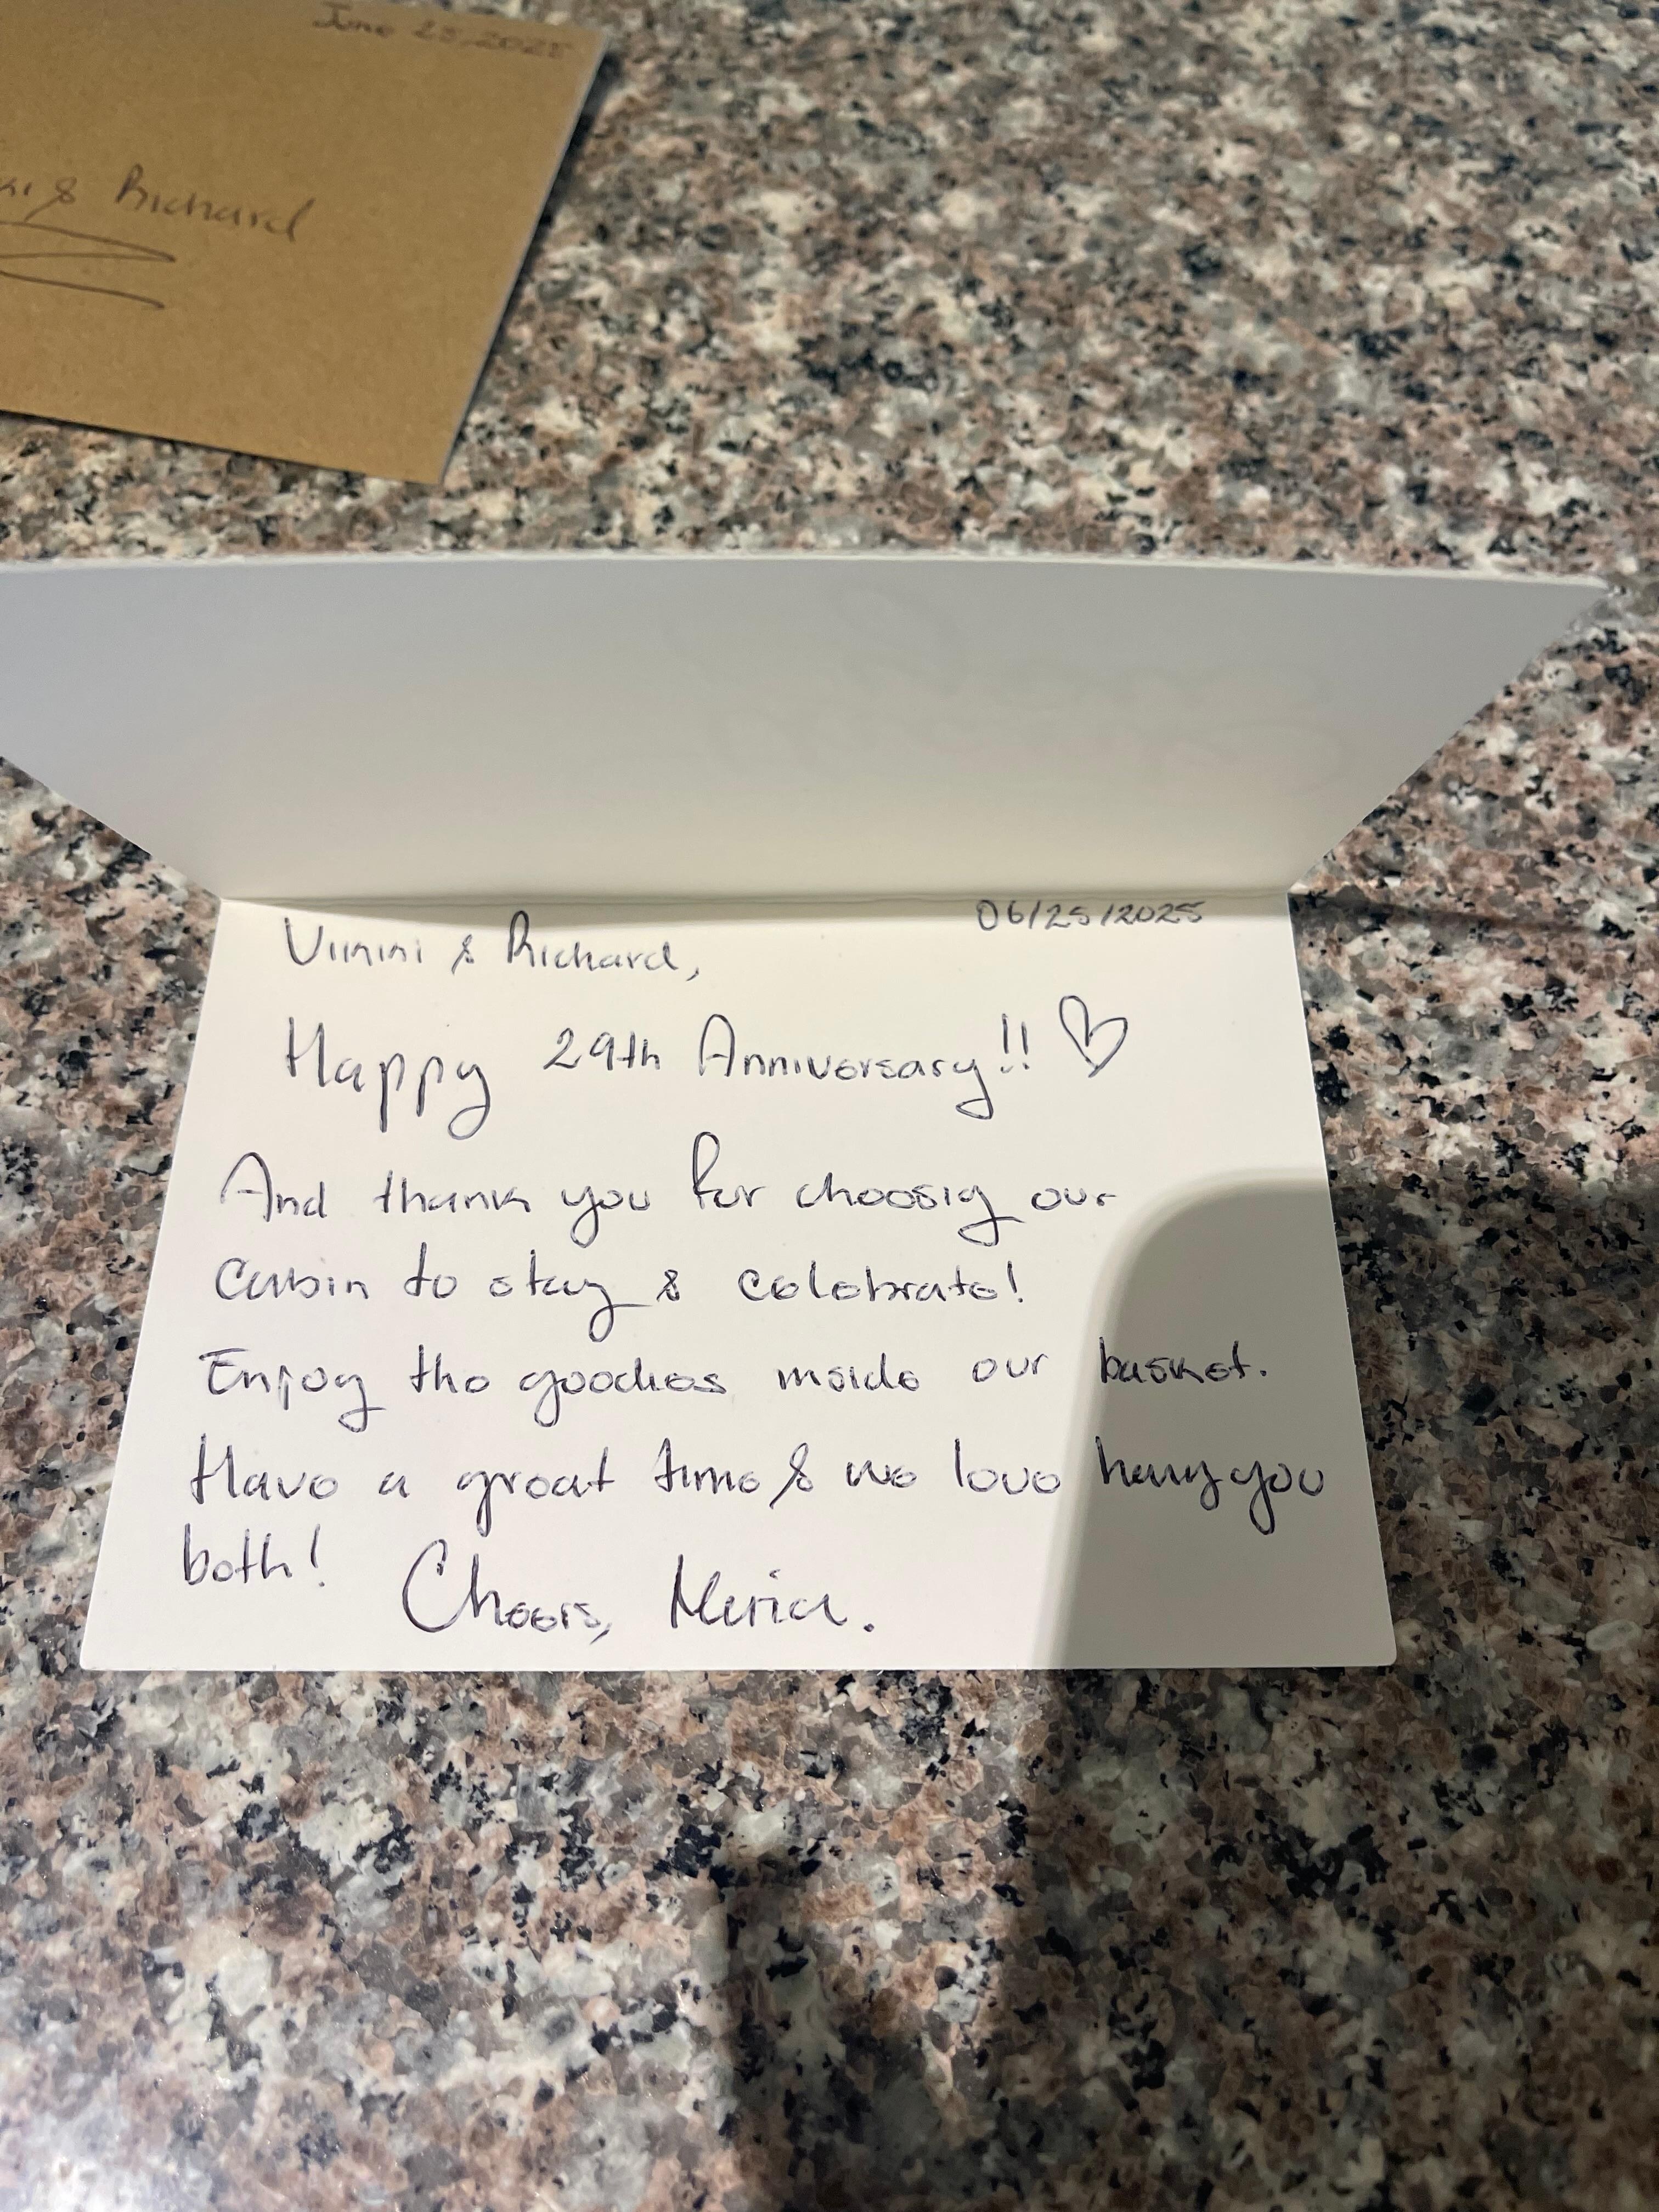 June 25, 2025
& Richard
06/25/2025
Vinni & Richard,
Happy 29th Anniversary!! ♡
And thank you for choosig our
Cabin to stay & celebrate!
Enjoy the goodies inside our basket.
Have a great time & we love havg you
both! Cheers, Maria.